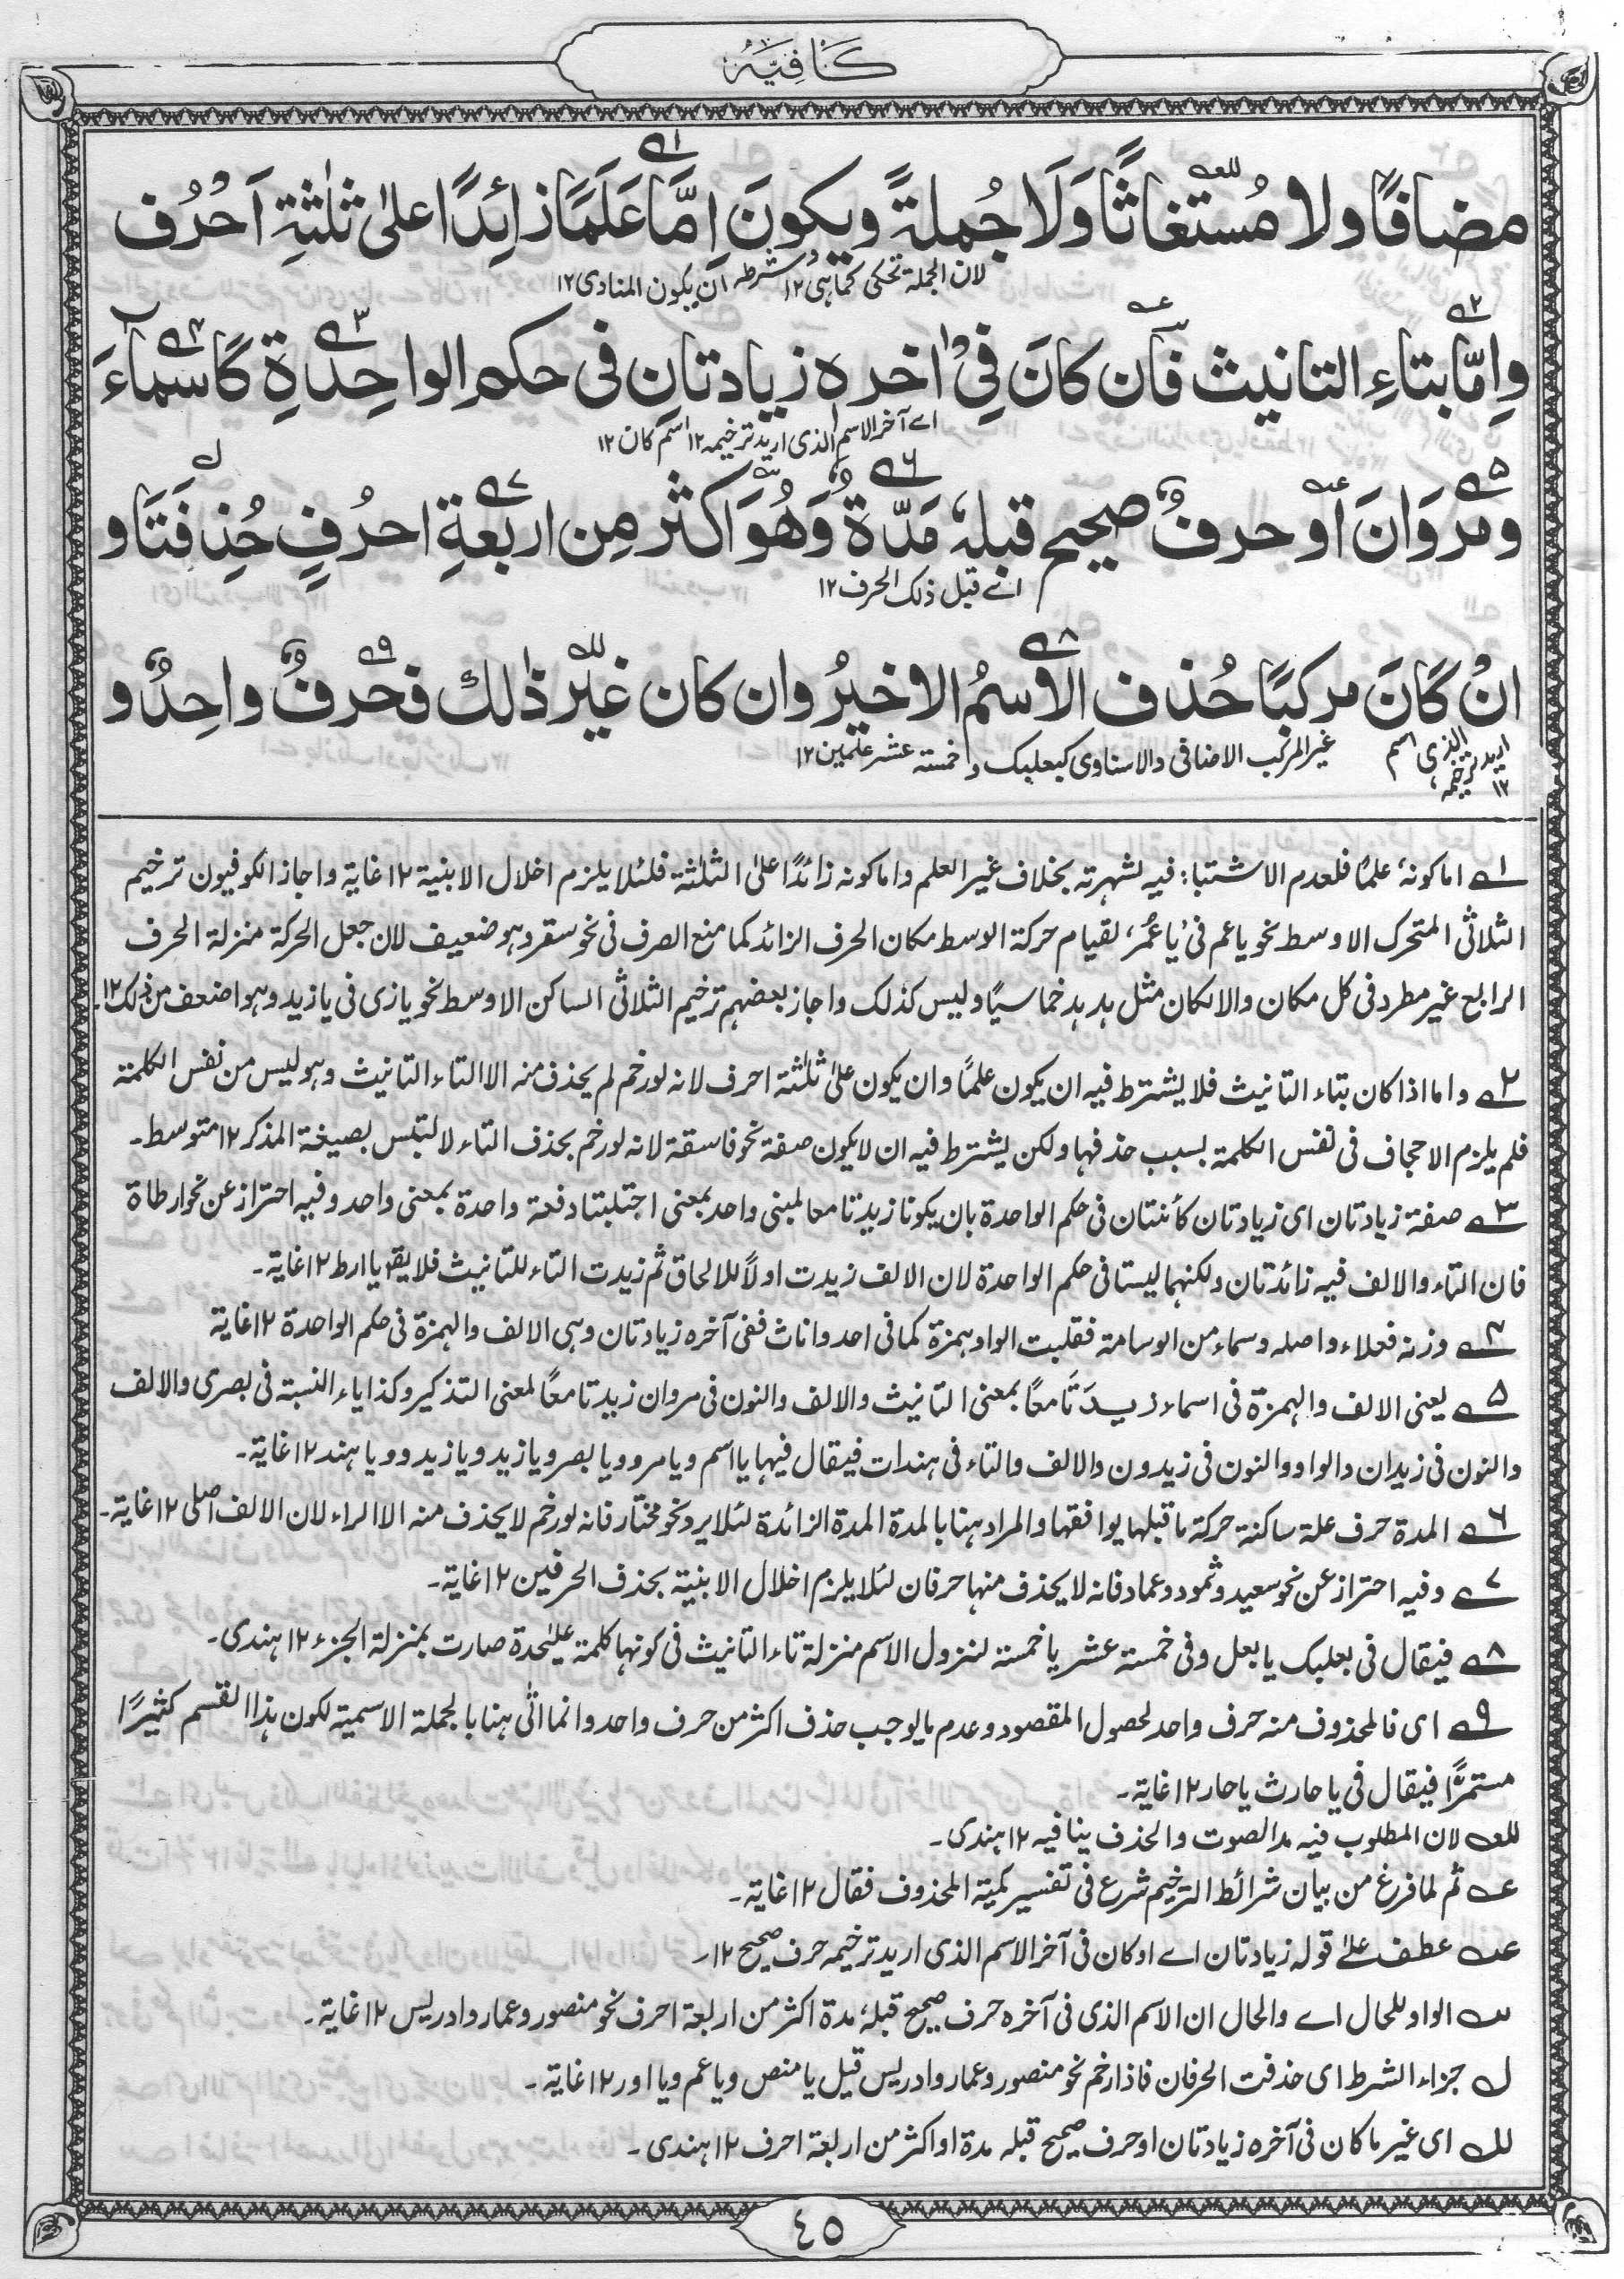 كَافِيَہ
مضافًا ولا مُستغاثًا وَلَا جُملةً ويكونَ اِمَّا عَلَمًا زائِدًا اعلىٰ ثلٰثةِ اَحْرُف
لان الجملة تحكى كما هى ١٢ شرطہ ان يكون المنادى ١٢
وَاِمّا بتاءِ التانيث فَان كانَ فِىْ اٰخره زيادتانِ فى حكمِ الواحِدةِ كَاَسْماءَ
اے آخر الاسم الذى اريد ترخيمہ ١٢ اسم كان ١٢
ومَرْوَانَ اَو حرفٌ صحيح قبلہٗ مَدّةٌ وَهُوَ اكثر مِن اربعةِ احرُفٍ حُذِفَتَا و
اے قبل ذلك الحرف ١٢
انْ كَانَ مركبًا حُذف الاسمُ الاخيرُ وان كان غيرَ ذٰلك فحرفٌ واحِدٌ و
اسم الذى اريد ترخيمہ ١٢ غير المركب الاضافى والاسنادى كبعلبك و خمسة عشر علمين ١٢
١ اما كونہٗ علمًا فلعدم الاشتباہ فيہ لشهرتہ بخلاف غير العلم واما كونہ زائدًا على الثلٰثة فلئلا يلزم اخلال الابنية ١٢ غاية واجاز الكوفيون ترخيم
الثلاثى المتحرك الاوسط نحو يا عم فى يا عُمر، لقيام حركة الوسط مكان الحرف الزائد كما منع الصرف فى نحو سقر وهو ضعيف لان جعل الحركة منزلة الحرف
الرابع غير مطرد فى كل مكان والا لكان مثل هدهد خماسيًا وليس كذلك واجاز بعضهم ترخيم الثلاثى الساكن الاوسط نحو يا زى فى يا زيد وهو اضعف من ذلك ١٢
٢ واما اذا كان بتاء التانيث فلا يشترط فيہ ان يكون علمًا وان يكون على ثلثة احرف لانہ لو رخم لم يحذف منہ الا التاء التانيث وهو ليس من نفس الكلمة
فلم يلزم الاجحاف فى نفس الكلمة بسبب حذفها ولكن يشترط فيہ ان لا يكون صفة نحو فاسقة لانہ لو رخم بحذف التاء لالتبس بصيغة المذكر ١٢ متوسط۔
٣ صفة زيادتان اى زيادتان كائنتان فى حكم الواحدة بان يكونا زيدتا معا لمبنى واحد بمعنى اجتلبتا دفعة واحدة بمعنى واحد وفيہ احتراز عن نحو ارطاة
فان التاء والالف فيہ زائدتان ولكنهما ليستا فى حكم الواحدة لان الالف زيدت اولًا للالحاق ثم زيدت التاء للتانيث فلا يقہ يا ارط ١٢ غاية۔
٤ وزنہ فعلاء واصلہ وسماء من الوسامة فقلبت الواو همزة كما فى احد واناث ففى آخرہ زيادتان وهى الالف والهمزة فى حكم الواحدة ١٢ غاية
٥ يعنى الالف والهمزة فى اسماء زيدَتَا معًا بمعنى التانيث والالف والنون فى مروان زيدتا معًا لمعنى التذكير وكذا ياء النسبة فى بصرى والالف
والنون فى زيدان والواو والنون فى زيدون والالف والتاء فى هندات فيقال فيها يا اسم ويا مرو ويا بصر ويا زيد ويا زيد وويا هند ١٢ غاية۔
٦ المدة حرف علة ساكنة حركة ما قبلها يوافقها والمراد هنا بالمدة المدة الزائدة لئلا يرد نحو مختار فانہ لو رخم لا يحذف منہ الا الراء لان الالف اصلى ١٢ غاية۔
٧ وفيہ احتراز عن نحو سعيد وثمود وعماد فانہ لا يحذف منها حرفان لئلا يلزم اخلال الابنية بحذف الحرفين ١٢ غاية۔
٨ فيقال فى بعلبك يا بعل وفى خمسة عشر يا خمسة لنزول الاسم منزلة تاء التانيث فى كونها كلمة عليٰحدة صارت بمنزلة الجزء ١٢ هندى۔
٩ اى فالمحذوف منہ حرف واحد لحصول المقصود وعدم ما يوجب حذف اكثر من حرف واحد وانما اتٰى هنا بالجملة الاسمية لكون هذا القسم كثيرًا
مستمرًا فيقال فى يا حارث يا حار ١٢ غاية۔
للعہ لان المطلوب فيہ مد الصوت والحذف ينافيہ ١٢ هندى۔
عہ ثم لما فرغ من بيان شرائط الترخيم شرع فى تفسير كمية المحذوف فقال ١٢ غاية۔
عہ عطف علےٰ قولہ زيادتان اے او كان فى آخر الاسم الذى اريد ترخيمہ حرف صحيح ١٢۔
سہ الواو للحال اے والحال ان الاسم الذى فى آخرہ حرف صحيح قبلہٗ مدة اكثر من اربعة احرف نحو منصور وعمار وادريس ١٢ غاية۔
لہ جزاء الشرط اى حذفت الحرفان فاذا رخم نحو منصور وعمار وادريس قيل يا منص ويا عم ويا ادر ١٢ غاية۔
للہ اى غير ما كان فى آخرہ زيادتان او حرف صحيح قبلہ مدة او اكثر من اربعة احرف ١٢ هندى۔
٤٥